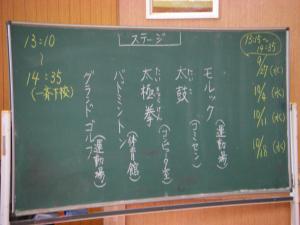 ステージ
13:10
〜
14:35
(一斉下校)
13:15〜
14:35
9/27(水)
10/4(水)
10/11(水)
10/18(水)
モルック(運動場)
太鼓(コミセン)
たいこ
太極拳
たいきょくけん
バドミントン(体育館)
グランドゴルフ(運動場)